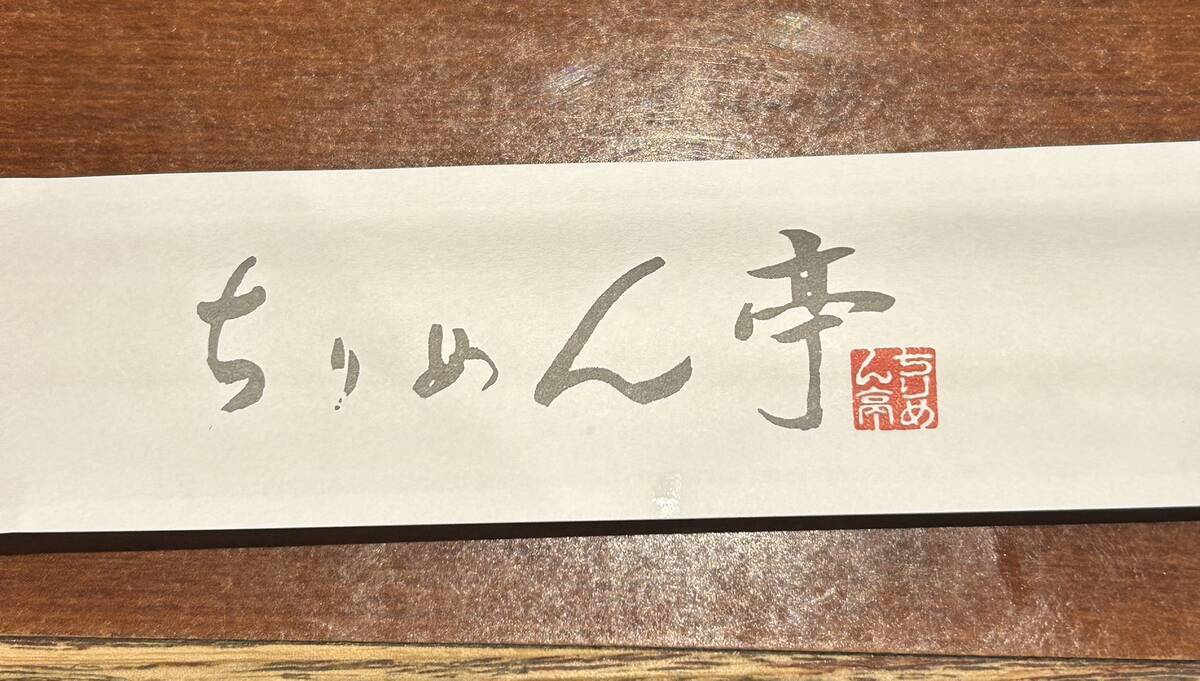 ちりめん亭
ちりめ
ん亭